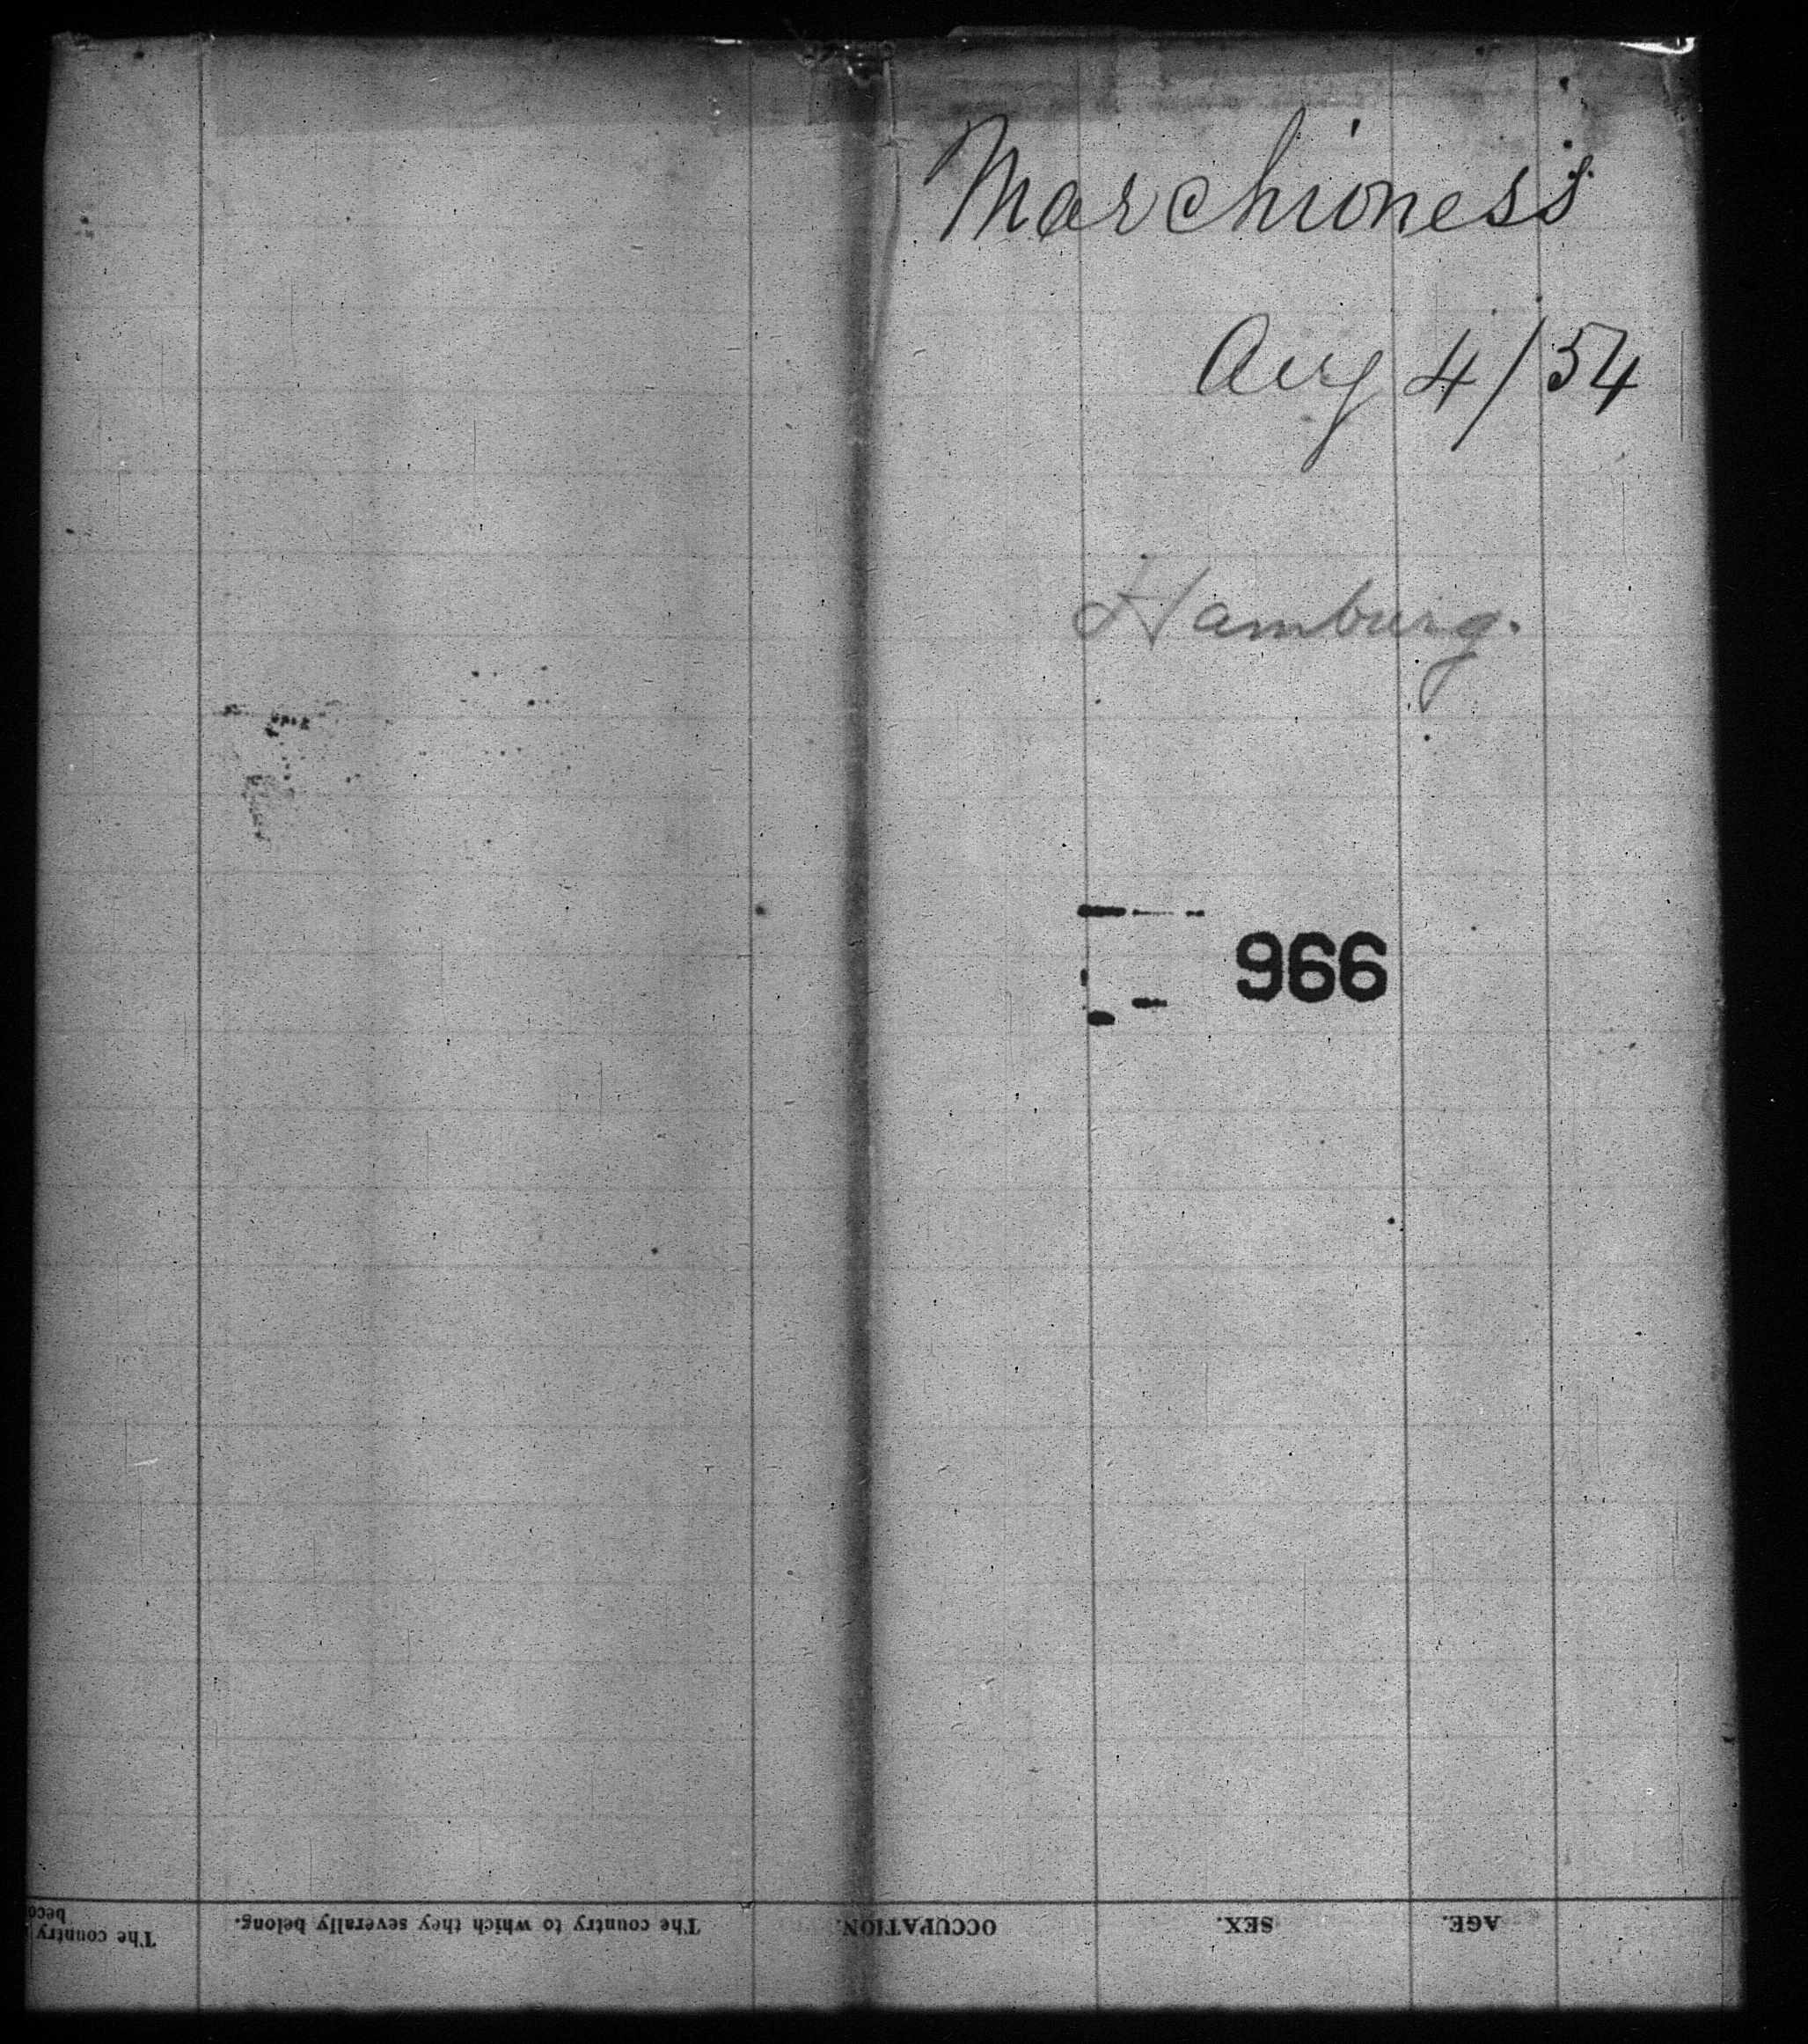 Marchioness
Aug 4/54
Hamburg.
966
AGE.
SEX.
OCCUPATION.
The country to which they severally belong.
The country